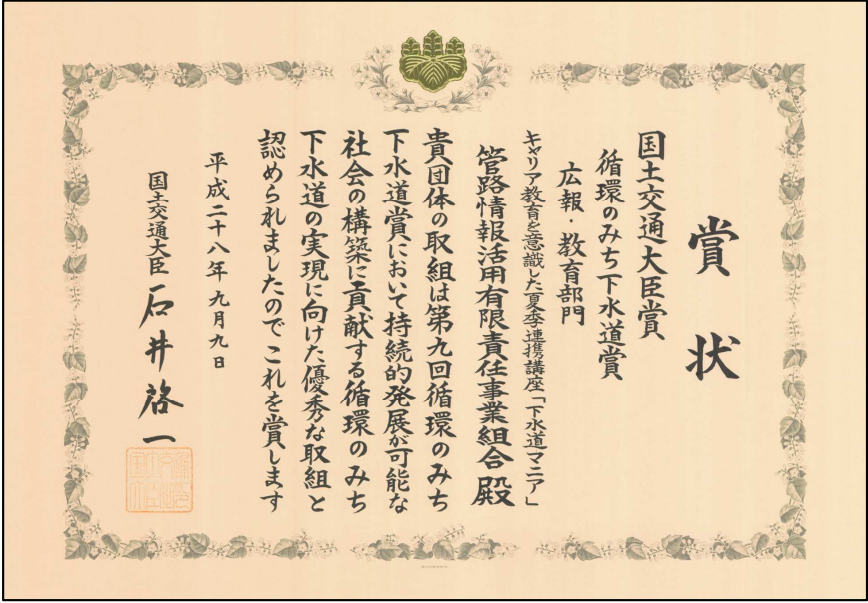 賞状
国土交通大臣賞
循環のみち下水道賞
広報・教育部門
キャリア教育を意識した夏季連携講座「下水道マニア」
管路情報活用有限責任事業組合殿
貴団体の取組は第九回循環のみち
下水道賞において持続的発展が可能な
社会の構築に貢献する循環のみち
下水道の実現に向けた優秀な取組と
認められましたのでこれを賞します
平成二十八年九月九日
国土交通大臣 石井啓一